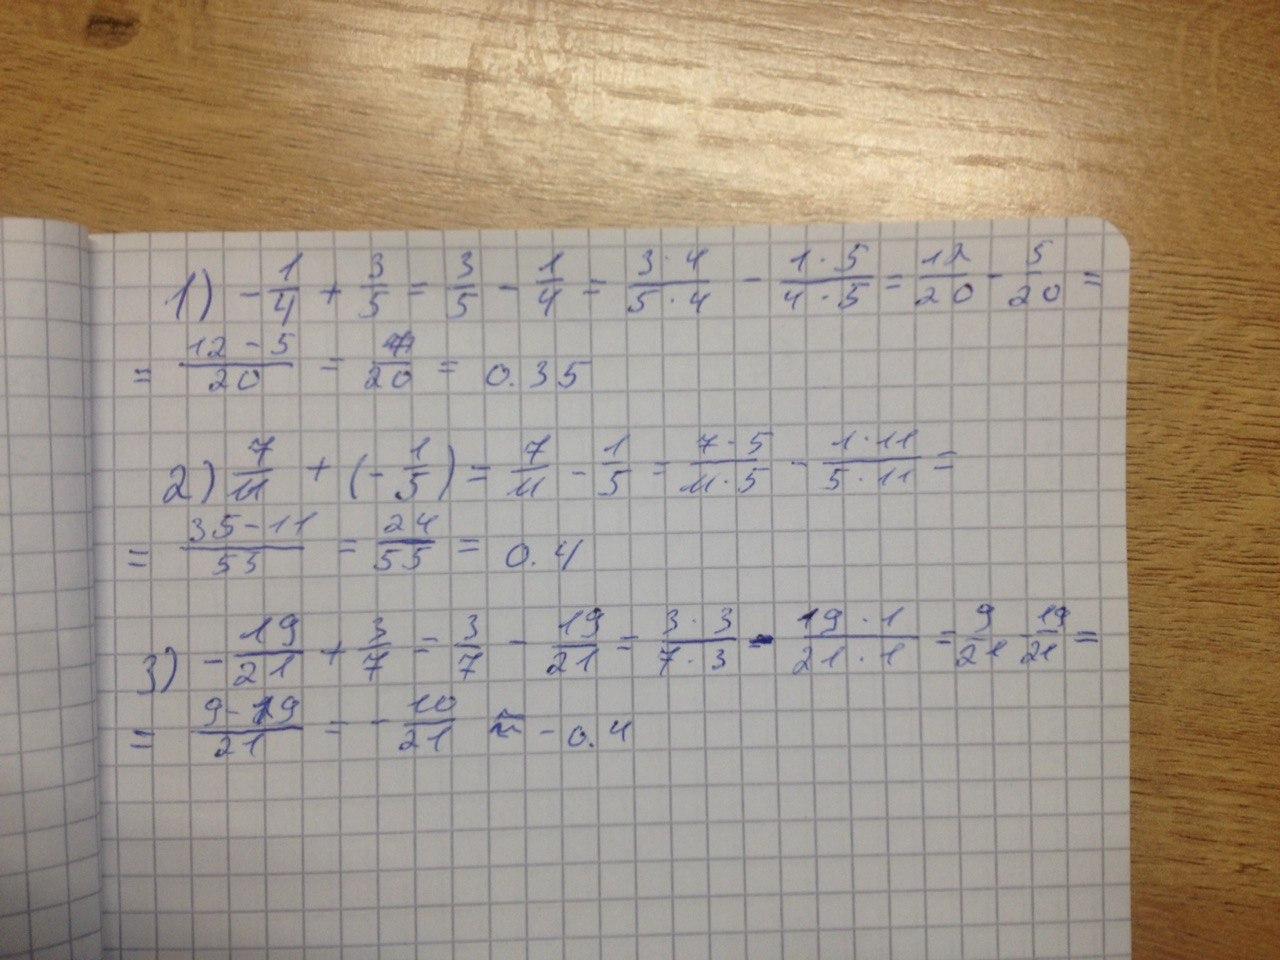 1) - 1/4 + 3/5 = 3/5 - 1/4 = 3·4/5·4 - 1·5/4·5 = 12/20 - 5/20 =
= 12-5/20 = 7/20 = 0.35
2) 7/11 + (- 1/5) = 7/11 - 1/5 = 7·5/11·5 - 1·11/5·11 =
= 35-11/55 = 24/55 = 0.4
3) - 19/21 + 3/7 = 3/7 - 19/21 = 3·3/7·3 - 19·1/21·1 = 9/21 - 19/21 =
= 9-19/21 = - 10/21 ≈ - 0.4